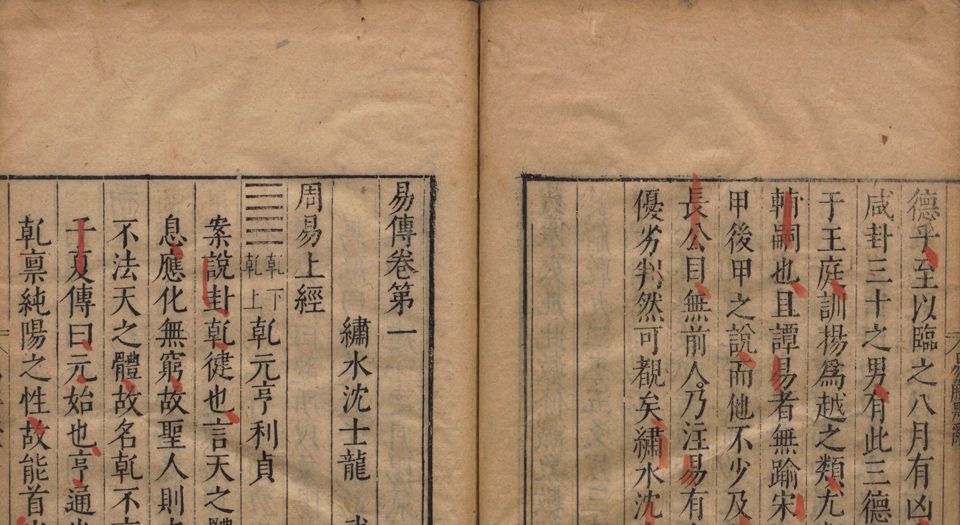 德乎至以臨之八月有凶
咸卦三十之男有此三德
于王庭訓揚爲越之類尤
輔嗣也且譚易者無踰宋
甲後甲之說而他不少及
長公目無前人乃注易有
優劣判然可覩矣繡水沈
易傳卷第一
繡水沈士龍
周易上經
䷀乾下乾上乾元亨利貞
案說卦乾健也言天之體
息應化無窮故聖人則
不法天之體故名乾不
子夏傳曰元始也亨通也
乾稟純陽之性故能首